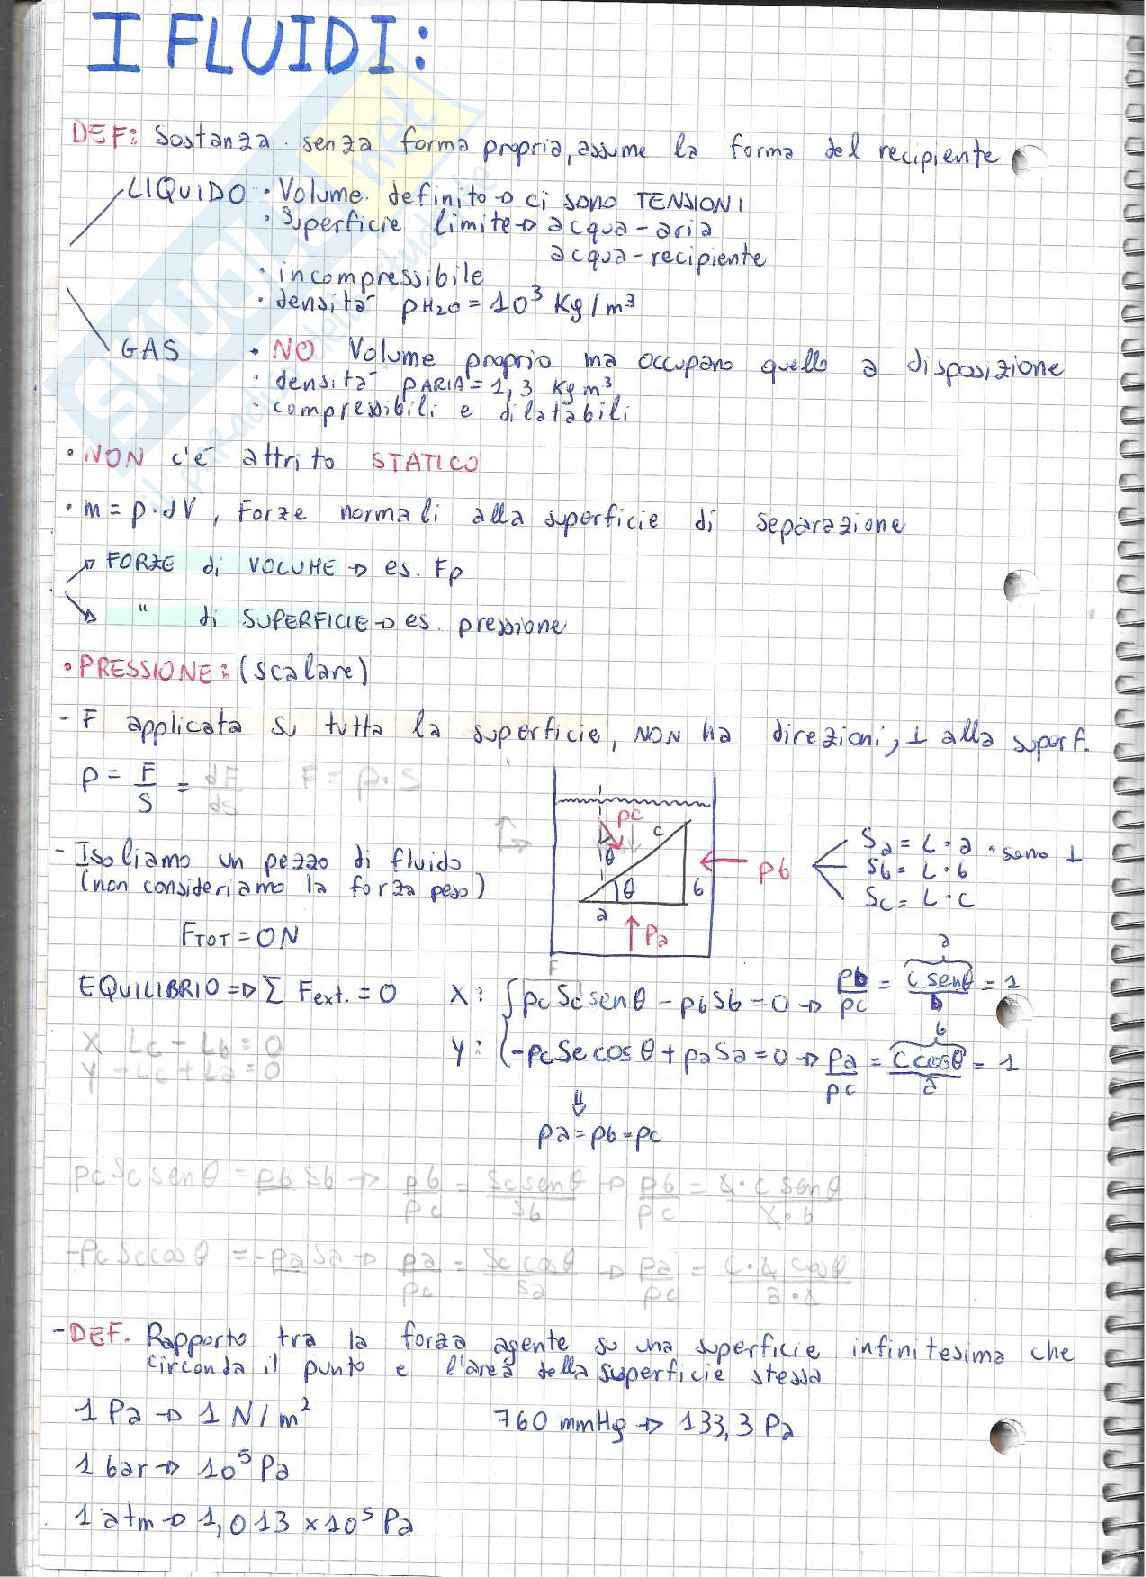 I FLUIDI:
DEF: Sostanza senza forma propria, assume la forma del recipiente
LIQUIDO • Volume definito → ci sono TENSIONI
• Superficie limite → acqua-aria
acqua-recipiente
• incompressibile
• densità ρH2O = 10³ Kg/m³
GAS • NO Volume proprio ma occupano quello a disposizione
• densità ρARIA = 1,3 Kg m³
• compressibili e dilatabili
• NON c'è attrito STATICO
• m = ρ·dV, Forze normali alla superficie di separazione
→ FORZE di VOLUME → es. Fp
→ " di SUPERFICIE → es. pressione
• PRESSIONE: (scalare)
- F applicata su tutta la superficie, NON ha direzioni, ⊥ alla superf.
p = F/S = dF/dS F = p·S
- Isoliamo un pezzo di fluido
(non consideriamo la forza peso)
FTOT = 0N
pc c θ θ a b pb pa F
Sa = L·a • sono ⊥
Sb = L·b
Sc = L·c
EQUILIBRIO ⇒ Σ Fext. = 0
X: { pc Sc senθ - pb Sb = 0 → pb/pc = c senθ/b = 1
Y: { -pc Sc cosθ + pa Sa = 0 → pa/pc = c cosθ/a = 1
a
b
⇓
pa = pb = pc
X Lc - Lb = 0
Y -Lc + La = 0
pc Sc senθ = pb Sb → pb/pc = Sc senθ/Sb → pb/pc = L·c senθ/L·b
-pc Sc cosθ = -pa Sa → pa/pc = Sc cosθ/Sa → pa/pc = L·c cosθ/a·L
- DEF. Rapporto tra la forza agente su una superficie infinitesima che
circonda il punto e l'area della superficie stessa
1 Pa → 1 N/m² 760 mmHg → 133,3 Pa
1 bar → 10⁵ Pa
1 atm → 1,013 x 10⁵ Pa